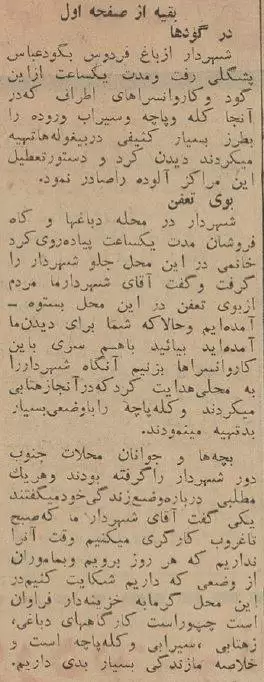 بقیه از صفحه اول
در گودها
شهردار ازباغ فردوس بگودعباس
پشگلی رفت ومدت یکساعت ازاین
گود وکاروانسراهای اطراف که‌در
آنجا کله وپاچه وسیراب وروده را
بطرز بسیار کثیفی دربیغوله‌هاتهیه
میکردند دیدن کرد و دستورتعطیل
این مراکز آلوده راصادر نمود.
بوی تعفن
شهردار در محله دباغها و کاه
فروشان مدت یکساعت پیاده‌روی‌کرد
خانمی در این محل جلو شهردار را
گرفت وگفت آقای شهردارما مردم
ازبوی تعفن در این محل بستوه ـ
آمده‌ایم وحالاکه شما برای دیدن‌ما
آمده‌اید بیائید باهم سری باین
کاروانسراها بزنیم آنگاه شهرداررا
به محلی‌هدایت کردکه‌درآنجازهتابی
میکردند وکله‌پاچه راباوضعی‌بسیار
بدتهیه مینمودند.
بچه‌ها و جوانان محلات جنوب
دور شهردار راگرفته بودند وهریك
مطلبی درباره‌وضع‌زندگی‌خودمیگفتند
یکی گفت آقای شهردار ما که‌صبح
تاغروب کارگری میکنیم وقت آنرا
نداریم که هر روز برویم وبماموران
از وضعی که داریم شکایت کنیم‌در
این محل گرمابه خزینه‌دار فراوان
است چپوراست کارگاههای دباغی،
زهتابی ،سیرابی وکله‌پاچه است و
خلاصه مازندگی بسیار بدی داریم.